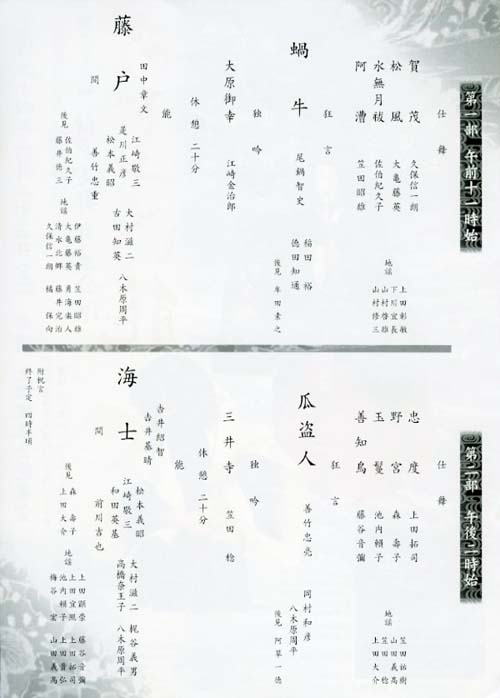 第一部 午前十一時始
仕舞
賀茂 久保信一朗
松風 大亀藤英
水無月祓 佐伯紀久子
阿漕 笠田昭雄
地謡
上田彰敏
下川宜長
山村啓雄
山村修三
狂言
蝸牛 尾鍋智史
福田裕
徳田知道
後見 牟田素之
独吟
大原御幸 江崎金治郎
休憩 二十分
能
藤戸
田中章文
江崎敬三
是川正彦
松本義昭
間 善竹忠重
大村滋二
古田知英
八木原周平
後見
佐伯紀久子
藤井徳三
地謡
伊藤裕貴
大亀藤英
清水北郷
久保信一朗
笠田昭雄
勇海楽人
藤井完治
橘保向
第二部 午後二時始
仕舞
忠度 上田拓司
野宮 森壽子
玉鬘 池内頼子
善知鳥 藤谷音彌
地謡
笠田祐樹
山田義高
笠田稔
上田大介
狂言
瓜盗人 善竹忠亮
岡村和彦
八木原周平
後見 阿草一徳
独吟
三井寺 笠田稔
休憩 二十分
能
海士
吉井紹智
吉井基晴
松本義昭
江崎敬三
和田英基
間 前川吉也
大村滋二
高橋奈王子
梶谷義男
八木原周平
後見
森壽子
上田大介
地謡
上田顕崇
上田宜照
池内頼子
梅谷宏
藤谷音彌
上田拓司
上田貴弘
山田義高
附祝言
終了予定 四時半頃